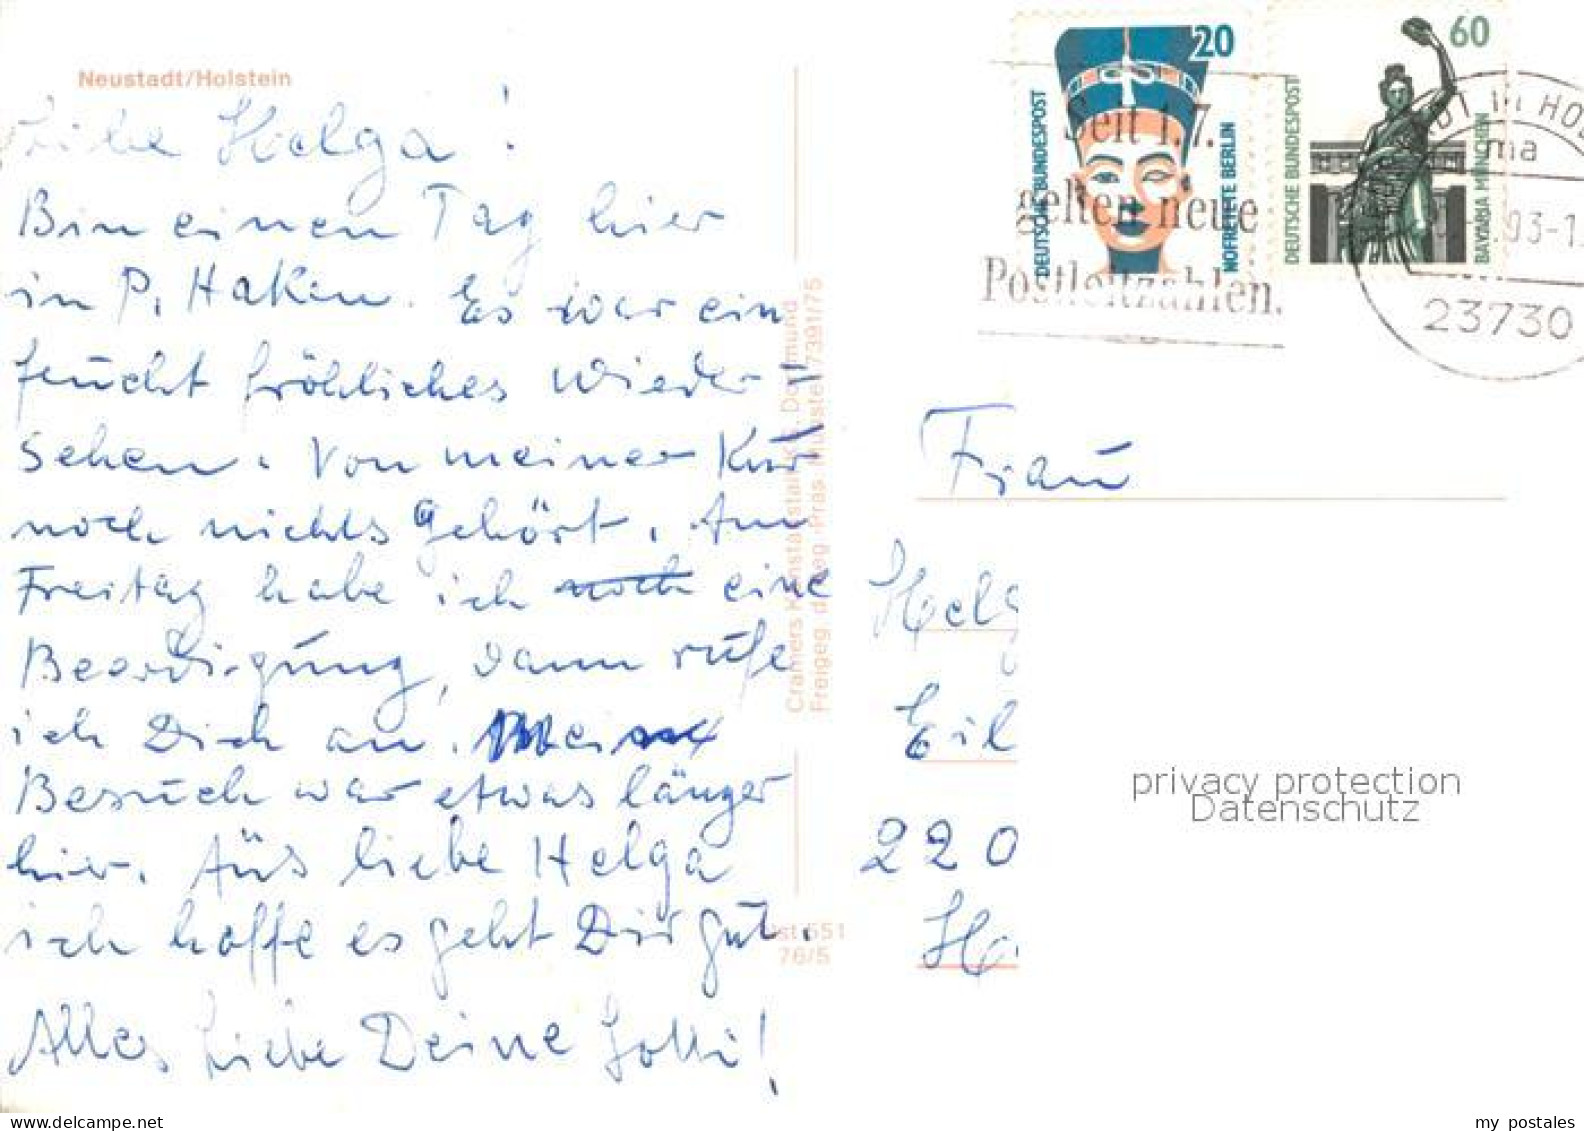 Neustadt/Holstein
Liebe Helga!
Bin einen Tag hier
in P. Haken. Es war ein
feucht fröhliches Wieder-
sehen. Von meiner Kur
noch nichts gehört. Am
Freitag habe ich noch eine
Beerdigung, dann rufe
ich Dich an. Mein
Besuch war etwas länger
hier. Tüs liebe Helga
ich hoffe es geht Dir gut.
Alles Liebe Deine
Cramers Kunstanstalt KG, Dortmund
Freigeg. d. Reg.-Präs. Münster 7391/75
Ost 551
76/5
20
DEUTSCHE BUNDESPOST
NOFRETETE BERLIN
60
DEUTSCHE BUNDESPOST
BAVARIA MÜNCHEN
Seit 1.7.
gelten neue
Postleitzahlen.
ma
93-1
23730
Frau
Helg
Eil
220
privacy protection
Datenschutz
my postales